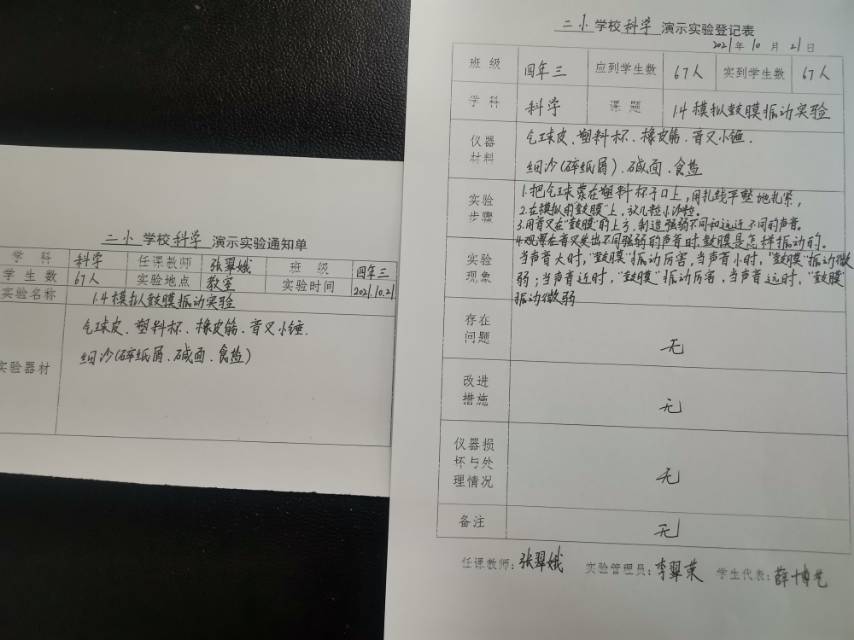 二小学校科学演示实验通知单
学科 科学 任课教师 张翠娥 班级 四年三
学生数 67人 实验地点 教室 实验时间 2021.10.21
实验名称 14模拟鼓膜振动实验
实验器材
气球皮、塑料杯、橡皮筋、音叉小锤.
细沙(碎纸屑、碱面、食盐)
二小学校科学演示实验登记表
2021年10月21日
班级 四年三 应到学生数 67人 实到学生数 67人
学科 科学 课题 14模拟鼓膜振动实验
仪器材料
气球皮、塑料杯、橡皮筋、音叉小锤.
细沙(碎纸屑)、碱面、食盐
实验步骤
1.把气球蒙在塑料杯子口上,用扎线平整地扎紧,
2.在模拟的"鼓膜"上,放几粒小沙粒。
3.用音叉在"鼓膜"的上方,制造强弱不同和远近不同的声音。
4.观察在音叉发出不同强弱的声音时,鼓膜是怎样振动的。
实验现象
当声音大时,"鼓膜"振动厉害,当声音小时,"鼓膜"振动微
弱;当声音近时,"鼓膜"振动厉害,当声音远时,"鼓膜"
振动微弱
存在问题 无
改进措施 无
仪器损坏与处理情况 无
备注 无
任课教师:张翠娥 实验管理员:李翠荣 学生代表:薛博艺